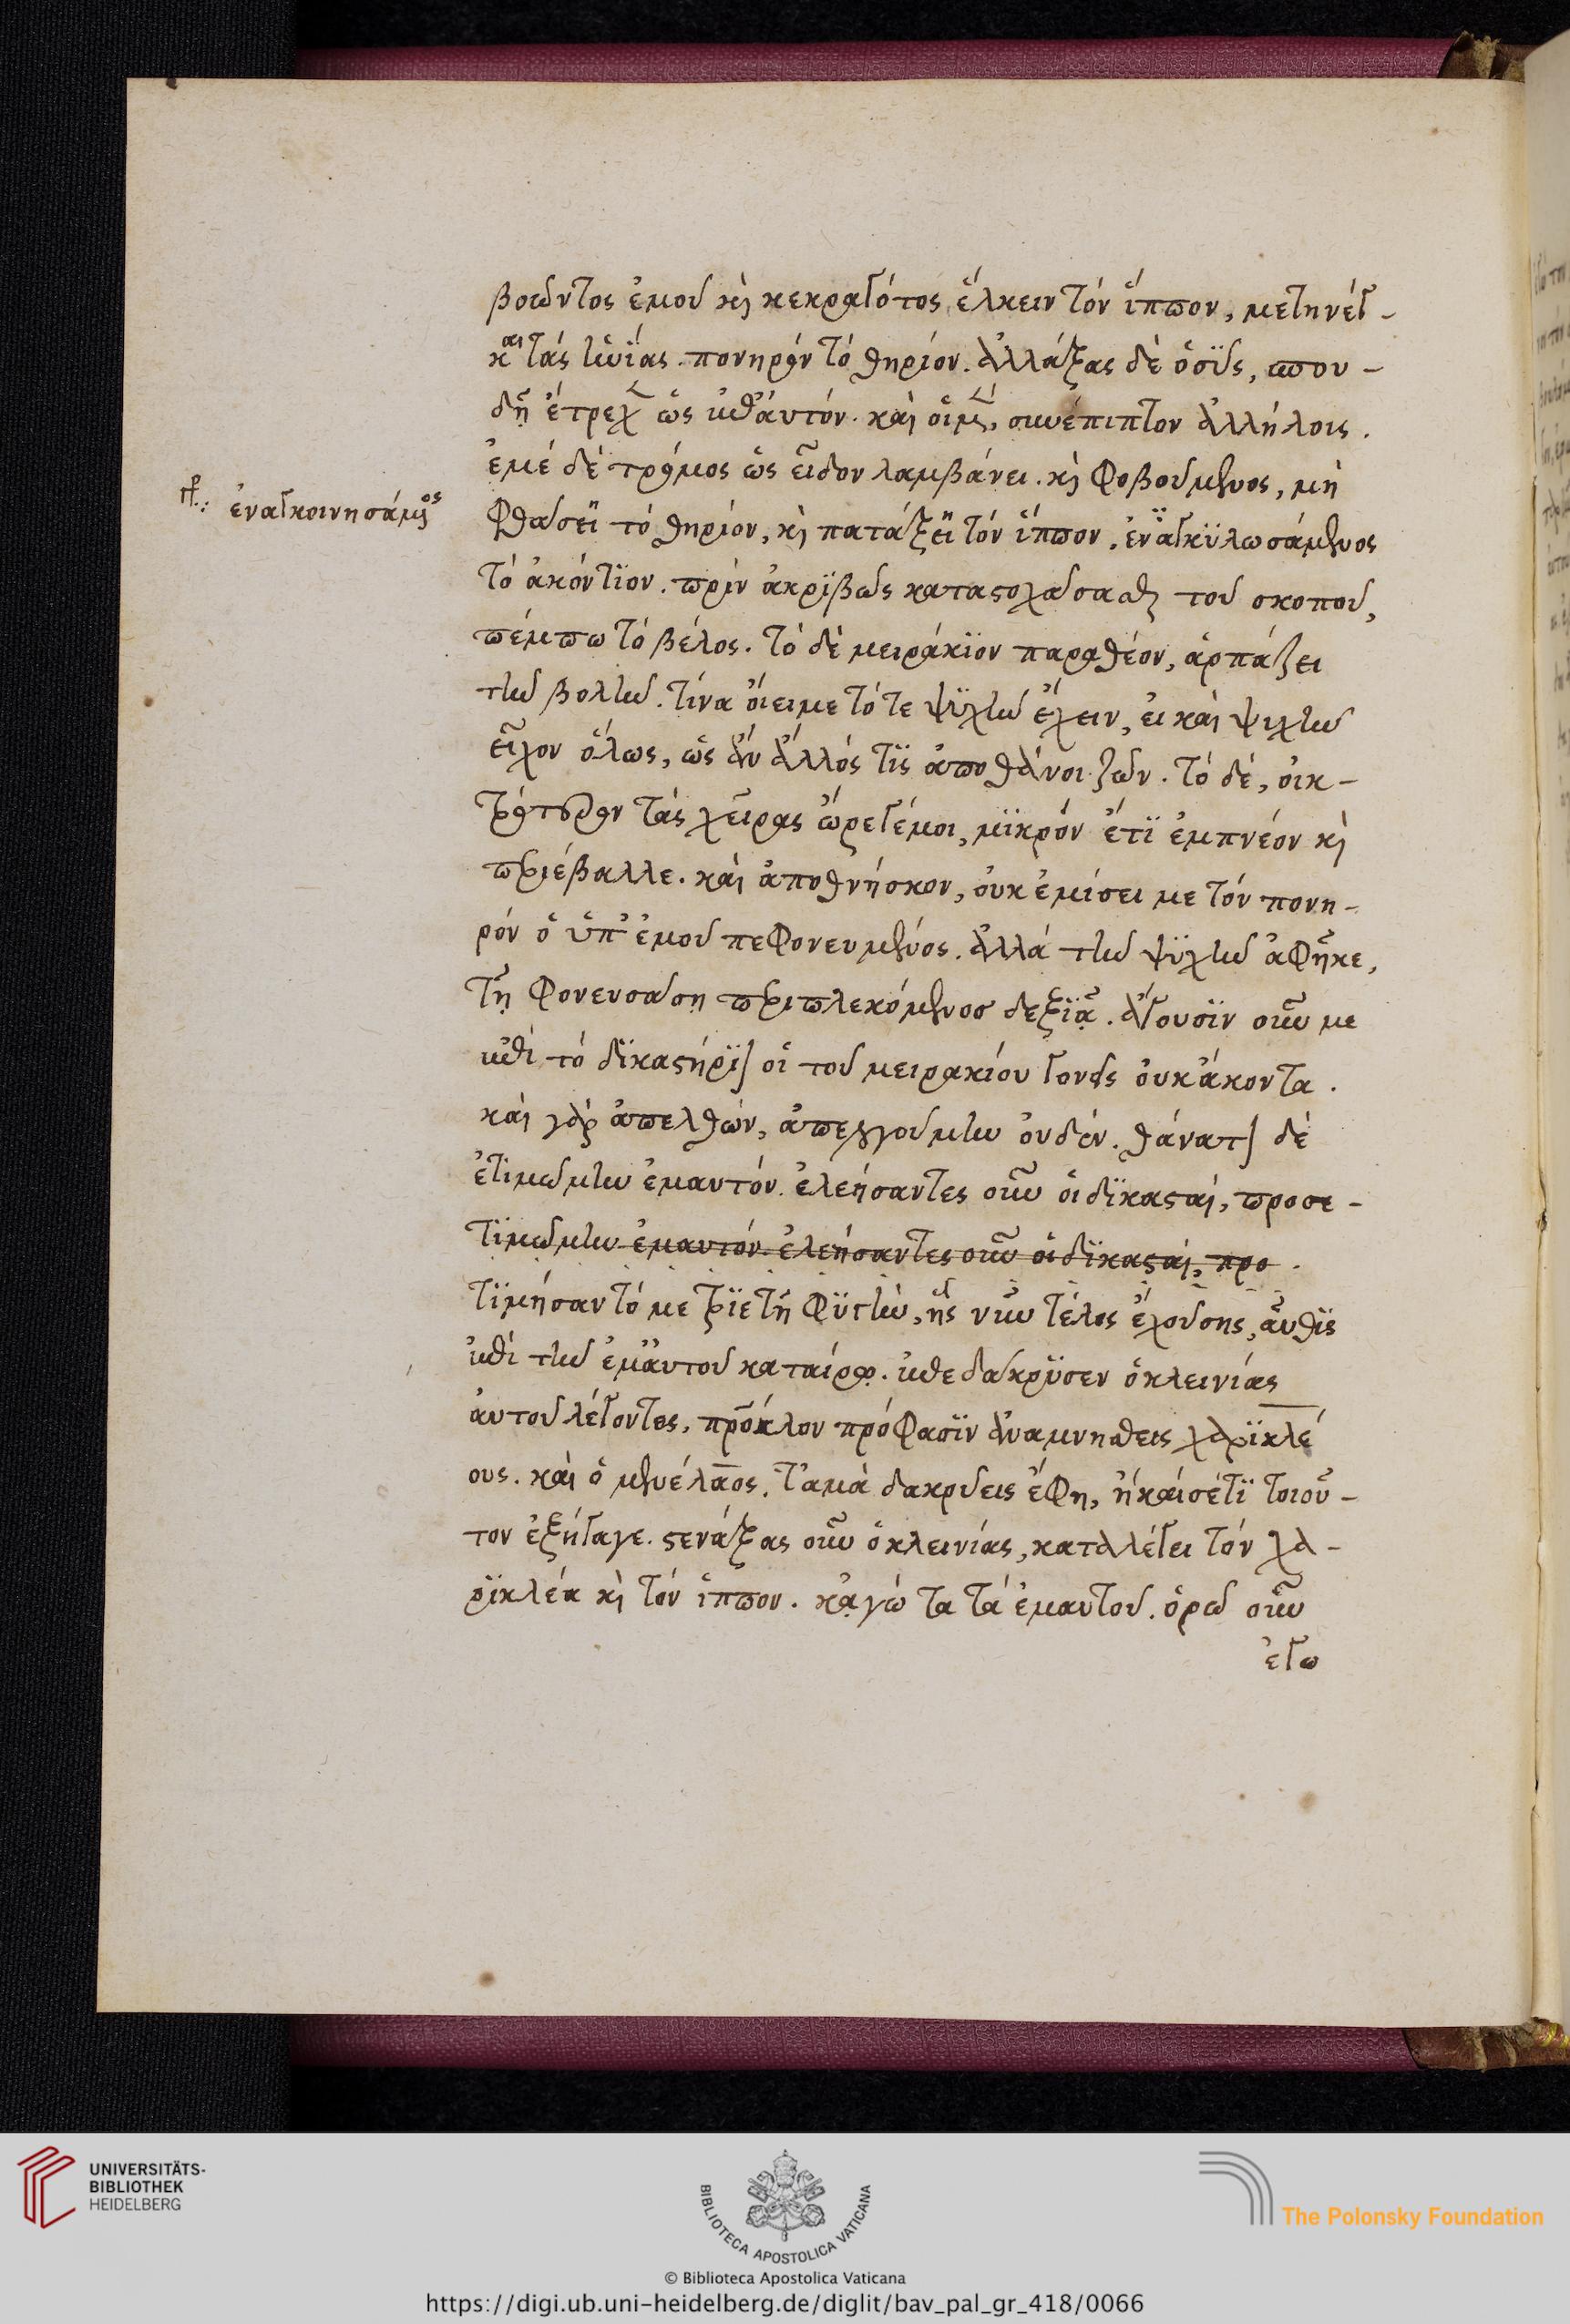 βοῶντος ἐμοῦ κὶ κεκραγότος ἕλκειν τὸν ἵππον, μετηνέγ-
και τὰς ἡνίας. πονηρὸν τὸ θηρίον. ἀλλάξας δὲ ὁ σῦς, σπου-
δῇ ἔτρεχεν ὡς ἐπ' αὐτόν. καὶ οἱ μὲν, συνέπιπτον ἀλλήλοις.
ἐμὲ δὲ τρόμος ὡς εἶδον λαμβάνει. κὶ φοβούμενος, μὴ
ἐναγκοινησάμενος
φθάσει τὸ θηρίον, κὶ πατάξει τὸν ἵππον, ἐναγκυλωσάμενος
τὸ ἀκόντιον. πρὶν ἀκριβῶς καταστοχάσασθαι τοῦ σκοποῦ,
πέμπω τὸ βέλος. τὸ δὲ μειράκιον παραθέον, ἁρπάζει
τὴν βολὴν. τίνα οἴει με τότε ψυχὴν ἔχειν, εἰ καὶ ψιχὴν
εἶχον ὅλως, ὡς ἂν ἄλλός τις ἀποθάνοι ζῶν. τὸ δὲ, οἰκ-
τρότερον τὰς χεῖρας ὤρεγέ μοι, μικρὸν ἔτι ἐμπνέον κὶ
περιέβαλλε. καὶ ἀποθνήσκον, οὐκ ἐμίσει με τὸν πονη-
ρὸν ὁ ὑπ' ἐμοῦ πεφονευμένος. ἀλλὰ τὴν ψυχὴν ἀφῆκε,
τῇ φονευσάσῃ περιπλεκόμενος δεξιᾷ. ἄγουσιν οὖν με
ἐπὶ τὸ δικαστήριον οἱ τοῦ μειρακίου γονεῖς οὐκ ἄκοντα.
καὶ γὰρ ἀπελθὼν, ἀπελγούμην οὐδέν. θάνατον δὲ
ἐτιμώμην ἐμαυτόν. ἐλεήσαντες οὖν οἱ δικασταὶ, προσε-
τιμώμην ἐμαυτόν. ἐλεήσαντες οὖν οἱ δικασταὶ, προ
τιμήσαντό με τριετῆ φυγὴν, ἧς νῦν τέλος ἐχούσης, αὖθις
ἐπὶ τὴν ἐμαυτοῦ καταίρω. ἐπεδάκρυσεν ὁ κλεινίας
αὐτοῦ λέγοντος, πρόκλον πρόφασιν ἀναμνησθεὶς χαρικλέ
ους. καὶ ὁ μενέλαος, τἀμὰ δακρύεις ἔφη, ἢ καί σέ τι τοιοῦ-
τον ἐξήγαγε. στενάξας οὖν ὁ κλεινίας, καταλέγει τὸν χα-
ρικλέα κὶ τὸν ἵππον. κᾀγὼ τα τὰ ἐμαυτοῦ. ὁρῶ οὖν
ἐγω
UNIVERSITÄTS-
BIBLIOTHEK
HEIDELBERG
BIBLIOTECA APOSTOLICA VATICANA
The Polonsky Foundation
© Biblioteca Apostolica Vaticana
https://digi.ub.uni-heidelberg.de/diglit/bav_pal_gr_418/0066